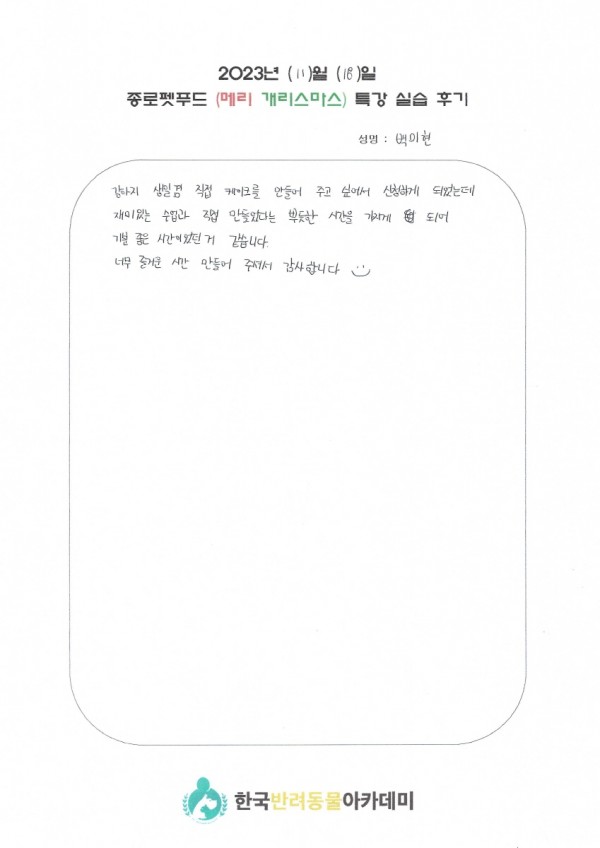 2023년 (11)월 (18)일
종로펫푸드 (메리 개리스마스) 특강 실습 후기
성명 : 백이현
강아지 생일겸 직접 케이크를 만들어 주고 싶어서 신청하게 되었는데
재미있는 수업과 직접 만들었다는 뿌듯한 시간을 가지게 되어
기분 좋은 시간이었던거 같습니다.
너무 즐거운 시간 만들어 주셔서 감사합니다
한국반려동물아카데미